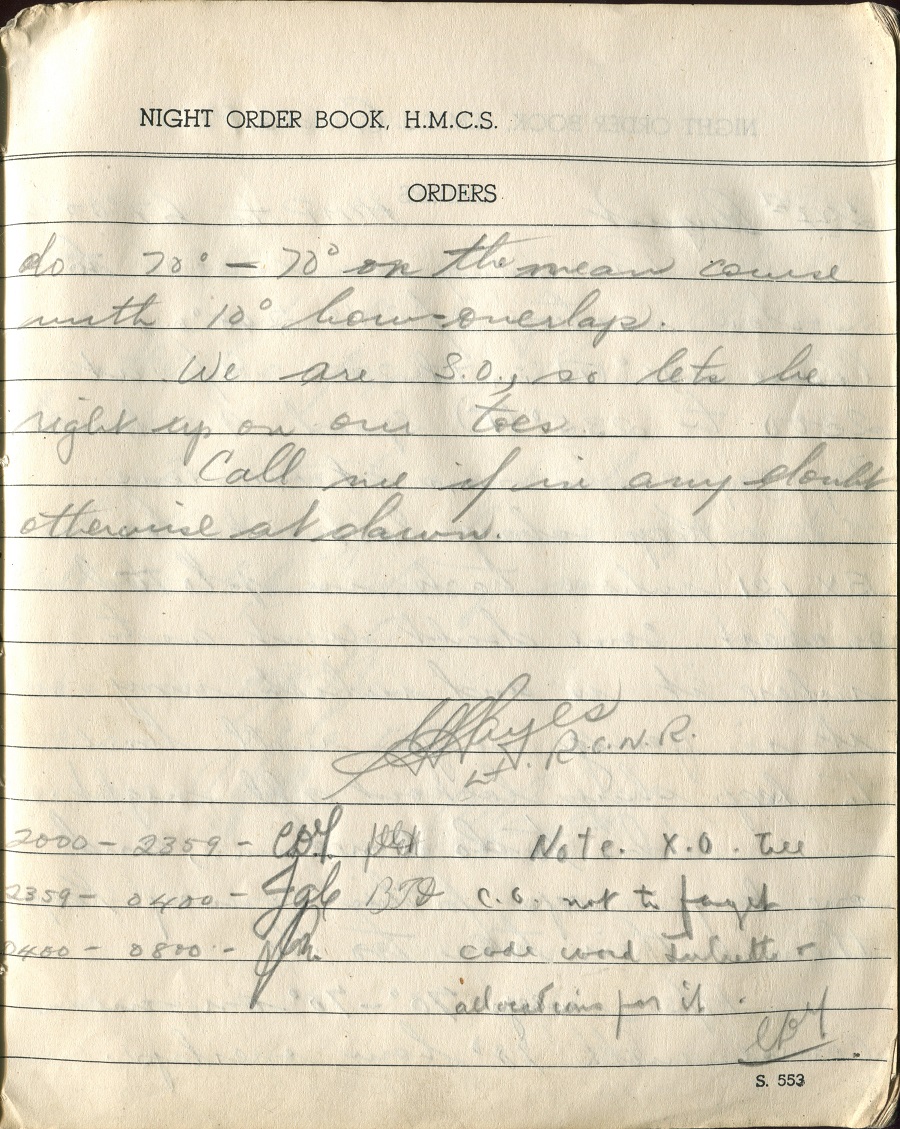 NIGHT ORDER BOOK, H.M.C.S.
ORDERS
do 70° - 70° on the mean course
with 10° bow overlap.
We are S.O., so lets be
right up on our toes
Call me if in any doubt
otherwise at dawn.
Hayes
Lt. R.C.N.R.
2000 - 2359 - Note. X.O. Tell
2359 - 0400 - C.O. not to forget
0400 - 0800 - code word
allocations for it.
S. 553